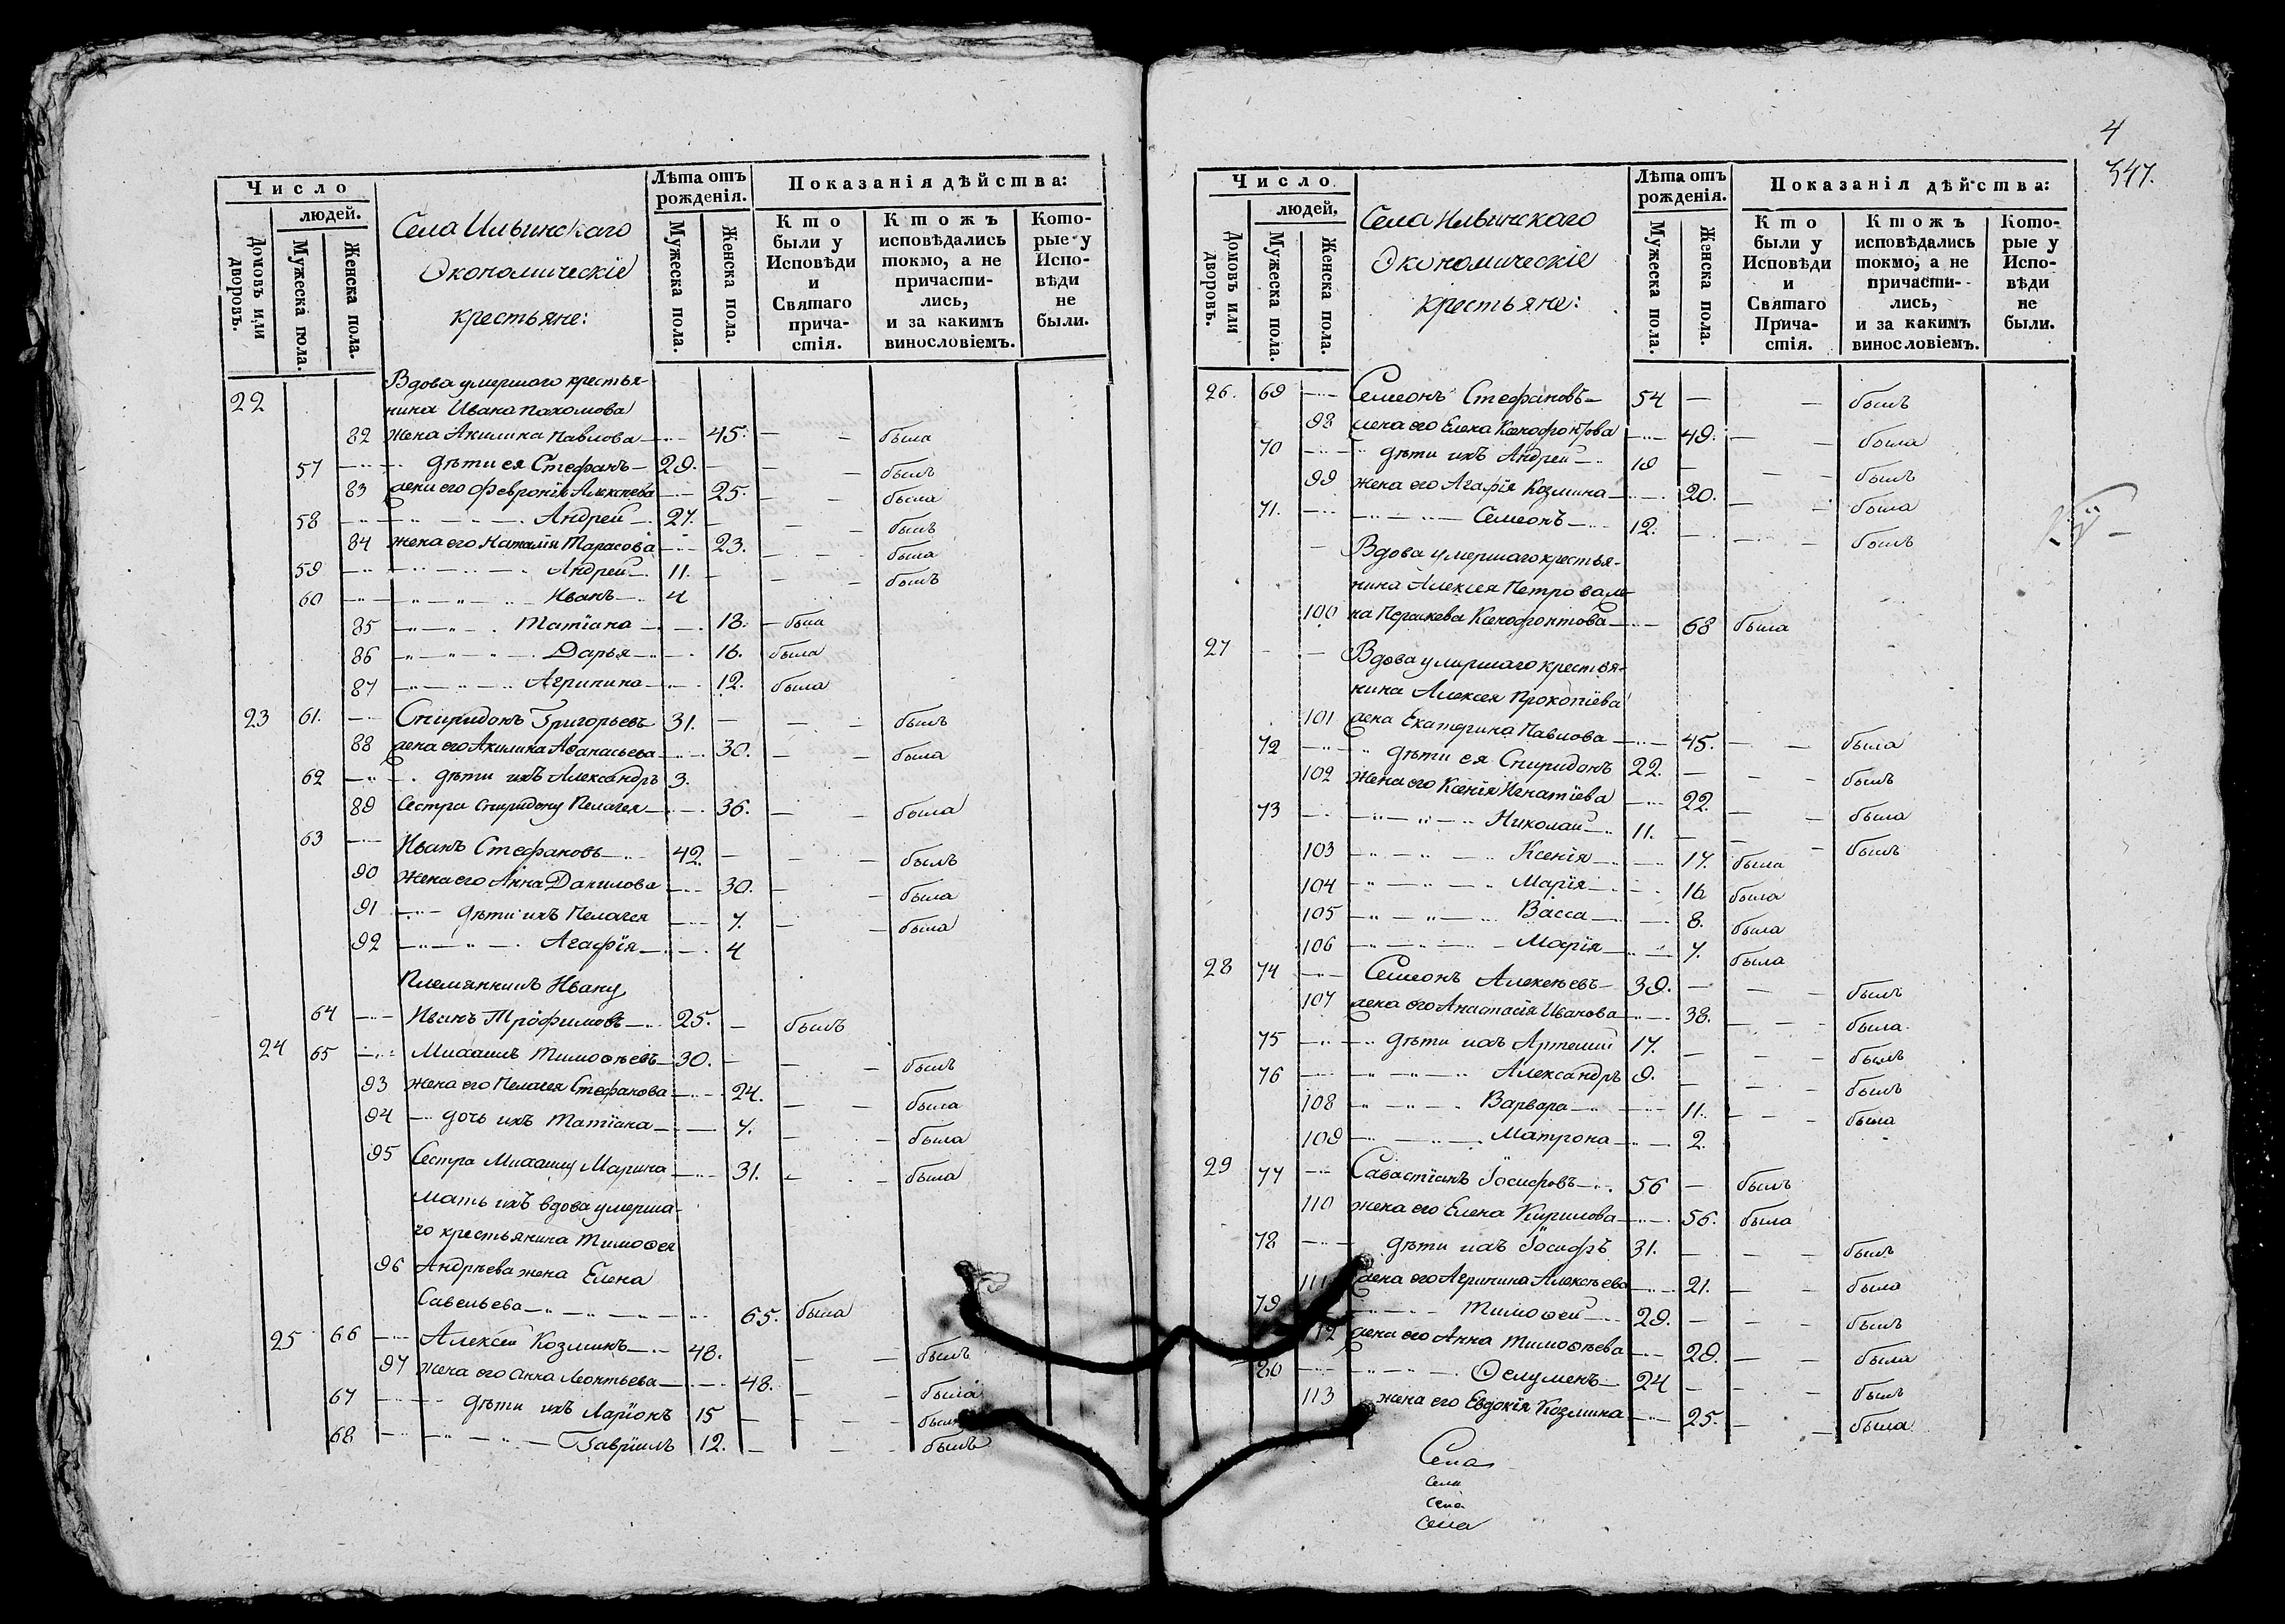 Число
людей.
Домовъ или дворовъ.
Мужеска пола.
Женска пола.
Села Ильинскаго
Экономическіе
крестьяне:
Лѣта отъ рожденія.
Мужеска пола.
Женска пола.
Показанія дѣйства:
Кто были у Исповѣди и Святаго причастія.
Ктожъ исповѣдались токмо, а не причастились, и за какимъ винословіемъ.
Которые у Исповѣди не были.
22 Вдова умершаго крестья-
нина Ивана Пахомова
82 жена Акилина Павлова 45. была
57 дѣти ея Стефанъ 29. былъ
83 жена его Февронія Алексѣева 25. была
58 Андрей 27. былъ
84 жена его Наталія Тарасова 23. была
59 Андрей 11. былъ
60 Иванъ 4
85 Татіана 18. была
86 Дарья 16. была
87 Агрипина 12. была
23 61. Спиридонъ Григорьевъ 31. былъ
88 жена его Акилина Аѳанасьева 30. была
62 дѣти ихъ Александръ 3.
89 Сестра Спиридону Пелагея 36. была
63 Иванъ Стефановъ 42. былъ
90 жена его Анна Данилова 30. была
91 дѣти ихъ Пелагея 7. была
92 Агафія 4
Племянникъ Ивану
64 Иванъ Трофимовъ 25. былъ
24 65 Михаилъ Тимоѳеевъ 30. былъ
93 жена его Пелагея Стефанова 24. была
94 дочь ихъ Татіана 7. была
95 Сестра Михаилу Марина 31. была
мать ихъ вдова умерша-
го крестьянина Тимоѳея
96 Андрѣева жена Елена
Савельева 65. была
25 66 Алексѣй Козминъ 48. былъ
97 жена его Анна Леонтьева 48. была
67 дѣти ихъ Ларіонъ 15 былъ
68 Гавріилъ 12. былъ
4
347.
Число
людей,
Домовъ или дворовъ.
Мужеска пола.
Женска пола.
Села Ильинскаго
Экономическіе
крестьяне:
Лѣта отъ рожденія.
Мужеска пола.
Женска пола.
Показанія дѣйства:
Кто были у Исповѣди и Святаго Причастія.
Ктожъ исповѣдались токмо, а не причастились, и за какимъ винословіемъ.
Которые у Исповѣди не были.
26. 69 Семеонъ Стефановъ 54 былъ
98 жена его Елена Ксенофонтова 49. была
70 дѣти ихъ Андрей 19 былъ
99 жена его Агафія Козмина 20. была
71. Семеонъ 12. былъ
Вдова умершаго крестья-
нина Алексея Петрова же-
100 на Параскева Ксенофонтова 68 была
27 Вдова умершаго крестья-
нина Алексея Прокопіева
101 жена Екатерина Павлова 45. была
72 дѣти ея Спиридонъ 22. былъ
102 жена его Ксенія Игнатіева 22. была
73 Николай 11. былъ
103 Ксенія 17. была
104 Марія 16 была
105 Васса 8. была
106 Марія 7. была
28 74 Семеонъ Алексѣевъ 39. былъ
107 жена его Анастасія Иванова 38. была
75 дѣти ихъ Артемій 17. былъ
76 Александръ 9. былъ
108 Варвара 11. была
109 Матрона 2.
29 77 Савастіанъ Іосифовъ 56 былъ
110 жена его Елена Кирилова 56. была
78 дѣти ихъ Іосифъ 31. былъ
111 жена его Агрипина Алексѣева 21. была
79 Тимоѳей 29. былъ
112 жена его Анна Тимоѳеева 29. была
80 Ѳелуменъ 24 былъ
113 жена его Евдокія Козмина 25. была
Села
Села
Села
Села